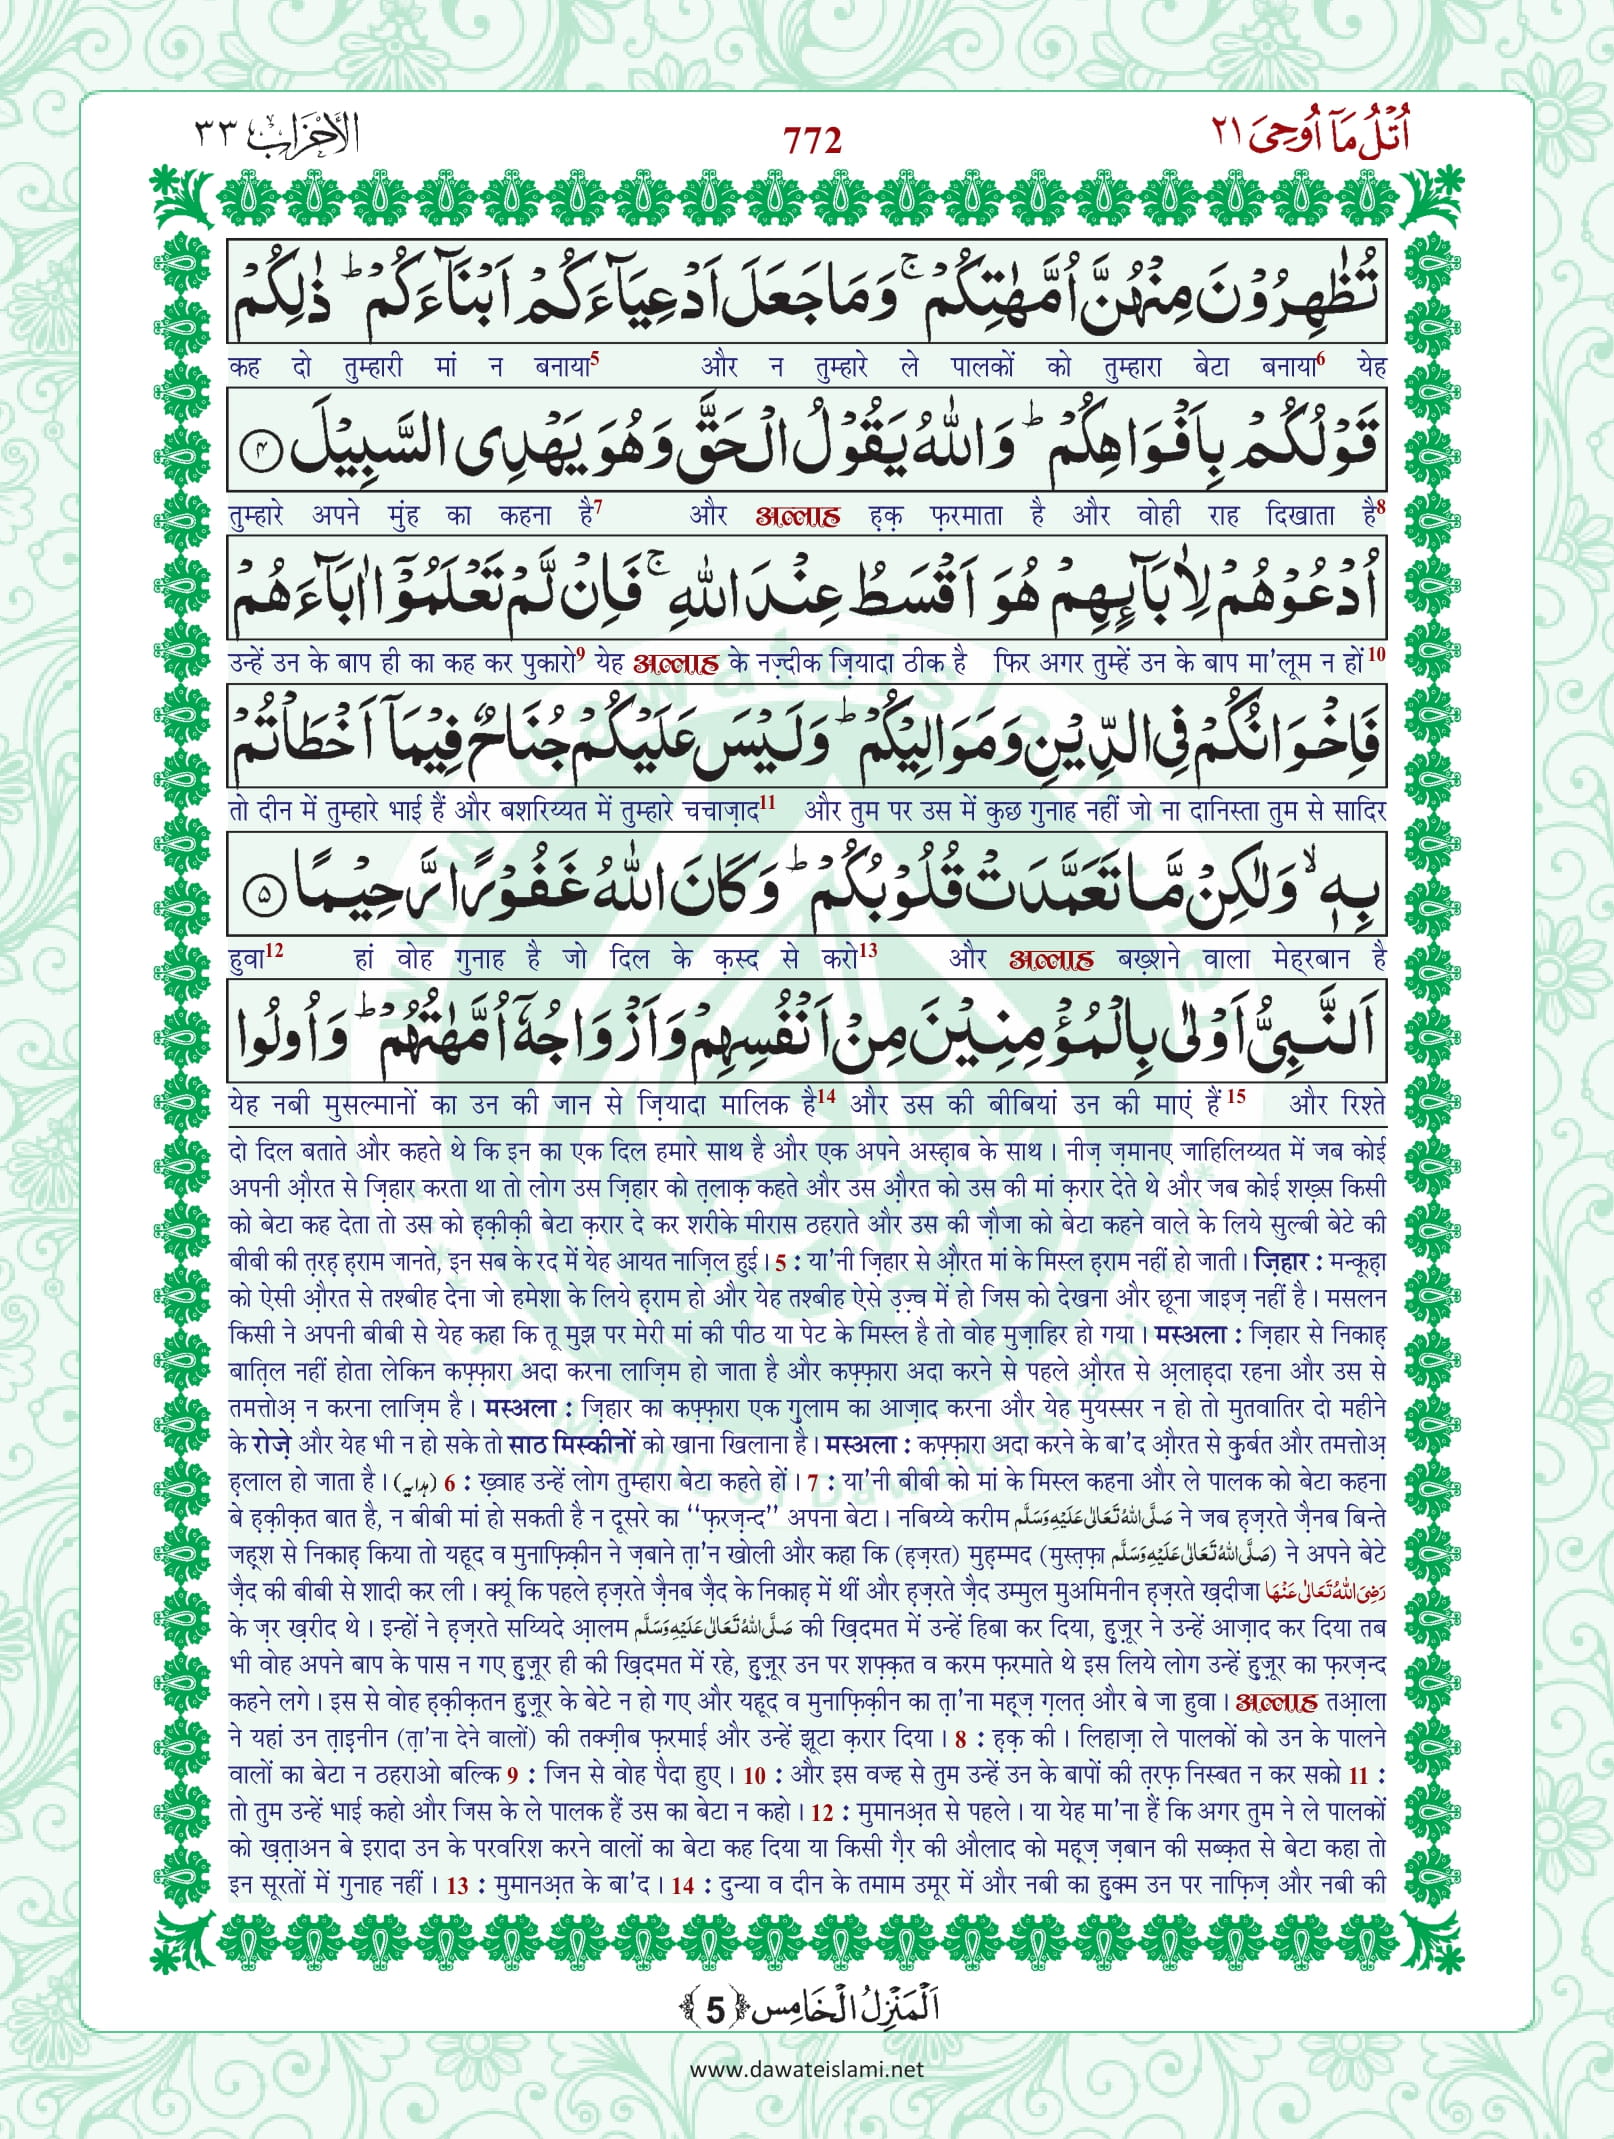 الاحزاب ٣٣
772
اُتْلُ مَآ اُوْحِیَ ٢١
تُظٰهِرُوْنَ مِنْهُنَّ اُمَّهٰتِكُمْ ۚ وَمَا جَعَلَ اَدْعِیَآءَكُمْ اَبْنَآءَكُمْ ؕ ذٰلِكُمْ
कह दो तुम्हारी मां न बनाया5 और न तुम्हारे ले पालकों को तुम्हारा बेटा बनाया6 येह
قَوْلُكُمْ بِاَفْوَاهِكُمْ ؕ وَاللّٰهُ یَقُوْلُ الْحَقَّ وَهُوَ یَهْدِی السَّبِیْلَ ﴿۴﴾
तुम्हारे अपने मुंह का कहना है7 और अल्लाह ह़क़ फ़रमाता है और वोही राह दिखाता है8
اُدْعُوْهُمْ لِاٰبَآىِٕهِمْ هُوَ اَقْسَطُ عِنْدَ اللّٰهِ ۚ فَاِنْ لَّمْ تَعْلَمُوْۤا اٰبَآءَهُمْ
उन्हें उन के बाप ही का कह कर पुकारो9 येह अल्लाह के नज़्दीक ज़ियादा ठीक है फिर अगर तुम्हें उन के बाप मा'लूम न हों10
فَاِخْوَانُكُمْ فِی الدِّیْنِ وَمَوَالِیْكُمْ ؕ وَلَیْسَ عَلَیْكُمْ جُنَاحٌ فِیْمَاۤ اَخْطَاْتُمْ
तो दीन में तुम्हारे भाई हैं और बशरिय्यत में तुम्हारे चचाज़ाद11 और तुम पर उस में कुछ गुनाह नहीं जो ना दानिस्ता तुम से सादिर
بِهٖ ۙ وَلٰكِنْ مَّا تَعَمَّدَتْ قُلُوْبُكُمْ ؕ وَكَانَ اللّٰهُ غَفُوْرًا رَّحِیْمًا ﴿۵﴾
हुवा12 हां वोह गुनाह है जो दिल के क़स्द से करो13 और अल्लाह बख़्शने वाला मेह्रबान है
اَلنَّبِیُّ اَوْلٰی بِالْمُؤْمِنِیْنَ مِنْ اَنْفُسِهِمْ وَاَزْوَاجُهٗۤ اُمَّهٰتُهُمْ ؕ وَاُولُوا
येह नबी मुसल्मानों का उन की जान से ज़ियादा मालिक है14 और उस की बीबियां उन की माएं हैं15 और रिश्ते
दो दिल बताते और कहते थे कि इन का एक दिल हमारे साथ है और एक अपने अस्ह़ाब के साथ । नीज़ ज़मानए जाहिलिय्यत में जब कोई
अपनी औ़रत से ज़िहार करता था तो लोग उस ज़िहार को त़लाक़ कहते और उस औ़रत को उस की मां क़रार देते थे और जब कोई शख़्स किसी
को बेटा कह देता तो उस को ह़क़ीक़ी बेटा क़रार दे कर शरीके मीरास ठहराते और उस की ज़ौजा को बेटा कहने वाले के लिये सुल्बी बेटे की
बीबी की त़रह़ ह़राम जानते, इन सब के रद में येह आयत नाज़िल हुई । 5 : या'नी ज़िहार से औ़रत मां के मिस्ल ह़राम नहीं हो जाती । ज़िहार : मन्कूह़ा
को ऐसी औ़रत से तश्बीह देना जो हमेशा के लिये ह़राम हो और येह तश्बीह ऐसे उ़ज़्व में हो जिस को देखना और छूना जाइज़ नहीं है । मसलन
किसी ने अपनी बीबी से येह कहा कि तू मुझ पर मेरी मां की पीठ या पेट के मिस्ल है तो वोह मुज़ाहिर हो गया । मस्अला : ज़िहार से निकाह़
बात़िल नहीं होता लेकिन कफ़्फ़ारा अदा करना लाज़िम हो जाता है और कफ़्फ़ारा अदा करने से पहले औ़रत से अ़लाह़दा रहना और उस से
तमत्तोअ़ न करना लाज़िम है । मस्अला : ज़िहार का कफ़्फ़ारा एक ग़ुलाम का आज़ाद करना और येह मुयस्सर न हो तो मुतवातिर दो महीने
के रोज़े और येह भी न हो सके तो साठ मिस्कीनों को खाना खिलाना है । मस्अला : कफ़्फ़ारा अदा करने के बा'द औ़रत से क़ुर्बत और तमत्तोअ़
ह़लाल हो जाता है । (ہدایہ) 6 : ख़्वाह उन्हें लोग तुम्हारा बेटा कहते हों । 7 : या'नी बीबी को मां के मिस्ल कहना और ले पालक को बेटा कहना
बे ह़क़ीक़त बात है, न बीबी मां हो सकती है न दूसरे का ‘‘फ़रज़न्द’’ अपना बेटा । नबिय्ये करीम صَلَّى اللّٰهُ تَعَالٰى عَلَيْهِ وَسَلَّم ने जब ह़ज़रते ज़ैनब बिन्ते
जह़्श से निकाह़ किया तो यहूद व मुनाफ़िक़ीन ने ज़बाने त़ा'न खोली और कहा कि (ह़ज़रत) मुह़म्मद (मुस्त़फ़ा صَلَّى اللّٰهُ تَعَالٰى عَلَيْهِ وَسَلَّم) ने अपने बेटे
ज़ैद की बीबी से शादी कर ली । क्यूं कि पहले ह़ज़रते ज़ैनब ज़ैद के निकाह़ में थीं और ह़ज़रते ज़ैद उम्मुल मुअमिनीन ह़ज़रते ख़दीजा رَضِىَ اللّٰهُ تَعَالٰى عَنْهَا
के ज़र ख़रीद थे । इन्हों ने ह़ज़रते सय्यिदे आ़लम صَلَّى اللّٰهُ تَعَالٰى عَلَيْهِ وَسَلَّم की ख़िदमत में उन्हें हिबा कर दिया, हुज़ूर ने उन्हें आज़ाद कर दिया तब
भी वोह अपने बाप के पास न गए हुज़ूर ही की ख़िदमत में रहे, हुज़ूर उन पर शफ़्क़त व करम फ़रमाते थे इस लिये लोग उन्हें हुज़ूर का फ़रज़न्द
कहने लगे । इस से वोह ह़क़ीक़तन हुज़ूर के बेटे न हो गए और यहूद व मुनाफ़िक़ीन का त़ा'ना मह़्ज़ ग़लत़ और बे जा हुवा । अल्लाह तआ़ला
ने यहां उन त़ाइ़नीन (त़ा'ना देने वालों) की तक्ज़ीब फ़रमाई और उन्हें झूटा क़रार दिया । 8 : ह़क़ की । लिहाज़ा ले पालकों को उन के पालने
वालों का बेटा न ठहराओ बल्कि 9 : जिन से वोह पैदा हुए । 10 : और इस वज्ह से तुम उन्हें उन के बापों की त़रफ़ निस्बत न कर सको 11 :
तो तुम उन्हें भाई कहो और जिस के ले पालक हैं उस का बेटा न कहो । 12 : मुमानअ़त से पहले । या येह मा'ना हैं कि अगर तुम ने ले पालकों
को ख़त़ाअन बे इरादा उन के परवरिश करने वालों का बेटा कह दिया या किसी ग़ैर की औलाद को मह़्ज़ ज़बान की सब्क़त से बेटा कहा तो
इन सूरतों में गुनाह नहीं । 13 : मुमानअ़त के बा'द । 14 : दुन्या व दीन के तमाम उमूर में और नबी का हुक्म उन पर नाफ़िज़ और नबी की
اَلْمَنْزِلُ الْخَامِس ﴿5﴾
www.dawateislami.net